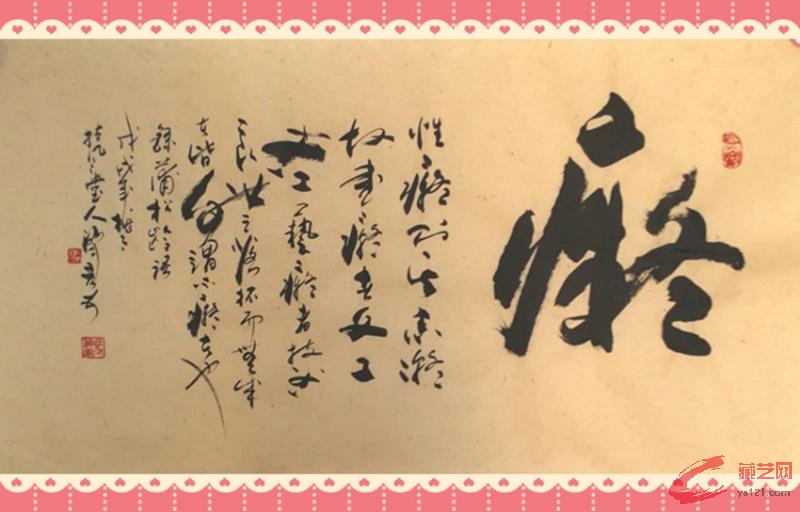 癡
性癡則其志凝
故書癡者文
必工藝癡者技必
良世之落拓而無成
者皆自謂不癡者也
錄蒲松齡語
戊戌年
堂人
藏艺网
ys121.com